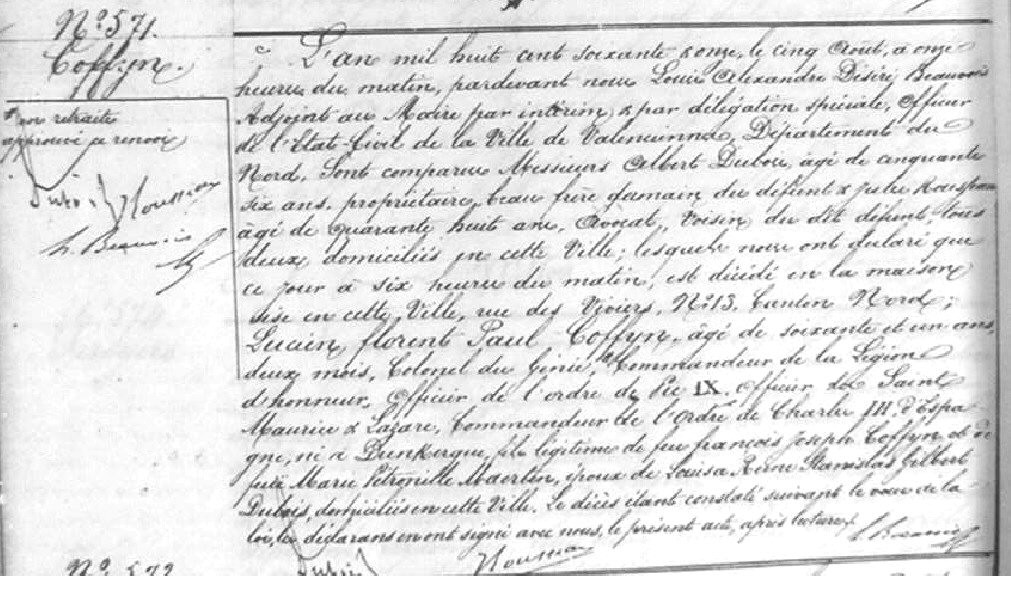 N° 571.
Coffyn.
retraité
approuvé je renvoie
Dubois
L. Beauvois
L'an mil huit cent soixante & onze, le cinq Août, à onze
heures du matin, pardevant nous Louis Alexandre Désiré Beauvois
Adjoint au Maire par intérim & par délégation spéciale, Officier
de l'État-Civil de la Ville de Valenciennes, Département du
Nord. Sont comparus Messieurs Albert Dubois, âgé de cinquante
six ans, propriétaire, beau frère germain du défunt & Jules
âgé de quarante huit ans, Avocat, voisin du dit défunt, tous
deux domiciliés en cette Ville; lesquels nous ont déclaré que
ce jour à six heures du matin, est décédé en la maison
sise en cette Ville, rue des Viviers, N° 13. Canton Nord;
Lucien, florent Paul Coffyn, âgé de soixante et un ans,
deux mois, Colonel du Génie, Commandeur de la Légion
d'honneur, Officier de l'ordre de Pie IX. Officier de Saint
Maurice & Lazare, Commandeur de l'Ordre de Charles III d'Espa-
gne, né à Dunkerque, fils légitime de feu françois Joseph Coffyn et de
feue Marie Pétronille Maertin, époux de Louisa Reine Stanislas Gilbert
Dubois, domiciliés en cette Ville. Le décès étant constaté suivant le vœu de la
loi, les déclarans en ont signé avec nous, le présent acte, après lecture.
Dubois
L. Beauvois
N° 572